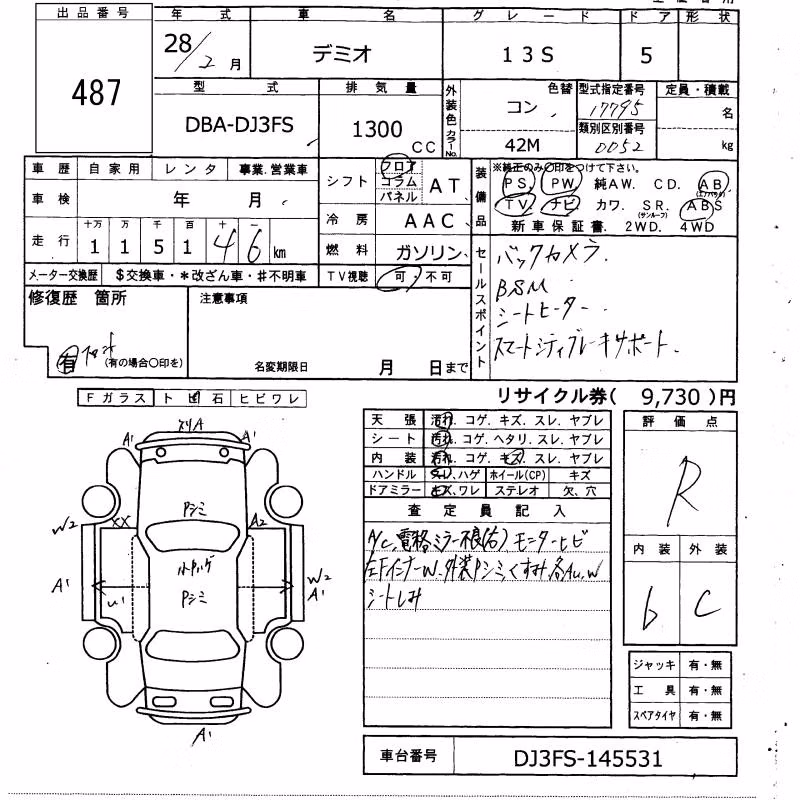 出品番号
487
年 式
28/2月
車 名
デミオ
グ レ ー ド
13S
ド ア
5
形 状
型 式
DBA-DJ3FS
排 気 量
1300 CC
外装色
カラーNo.
色替
コン
42M
型式指定番号
17795
類別区別番号
0052
定員・積載
名
kg
車 歴 自 家 用 レ ン タ 事業.営業車
車 検 年 月
走 行
十万 万 千 百 十 一
1 1 5 1 4 6 km
メーター交換歴 $交換車・*改ざん車・#不明車
シフト フロア コラム パネル AT
冷 房 AAC
燃 料 ガソリン
TV視聴 可・不可
装備品
※純正のみ〇印をつけて下さい。
PS. PW. 純AW. CD. AB
(エアバッグ)
TV. ナビ カワ. SR. ABS
(サンルーフ)
新車保証書. 2WD. 4WD
セールスポイント
バックカメラ.
BSM
シートヒーター
スマートシティブレーキサポート.
修復歴 箇所
有 (有の場合〇印を)
注意事項
名変期限日 月 日まで
リサイクル券( 9,730 )円
Fガラス ト ビ 石 ヒビワレ
天 張 汚れ. コゲ. キズ. スレ. ヤブレ
シート 汚れ. コゲ. ヘタリ. スレ. ヤブレ
内 装 汚れ. コゲ. キズ. スレ. ヤブレ
ハンドル スレ.ハゲ ホイール(CP) キズ
ドアミラー キズ.ワレ ステレオ 欠、穴
査 定 員 記 入
A/C 電格ミラー不良(右) モニターヒビ
左FインナーW. 外装Pシミくすみ.各AU.W
シートしみ
評 価 点
R
内 装 外 装
6 C
ジャッキ 有・無
工 具 有・無
スペアタイヤ 有・無
車台番号 DJ3FS-145531
スリA
A1 A1
Pシミ
XX A2
W2
A1
U1
Pシミ
W2
A1
A1